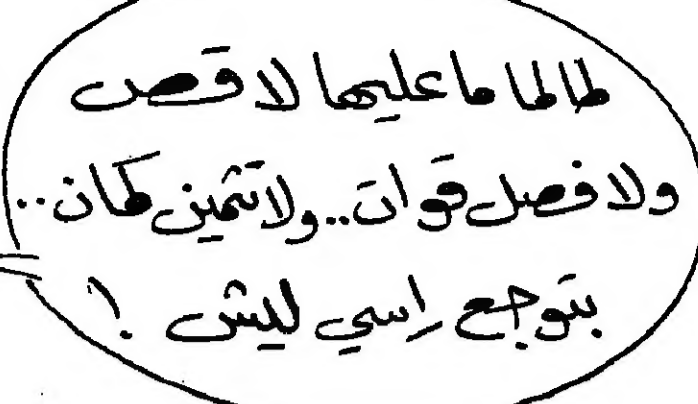 طالما ما عليها لا قصف
ولا فصل قوات.. ولا تثمين كمان..
بتوجع راسي ليش !